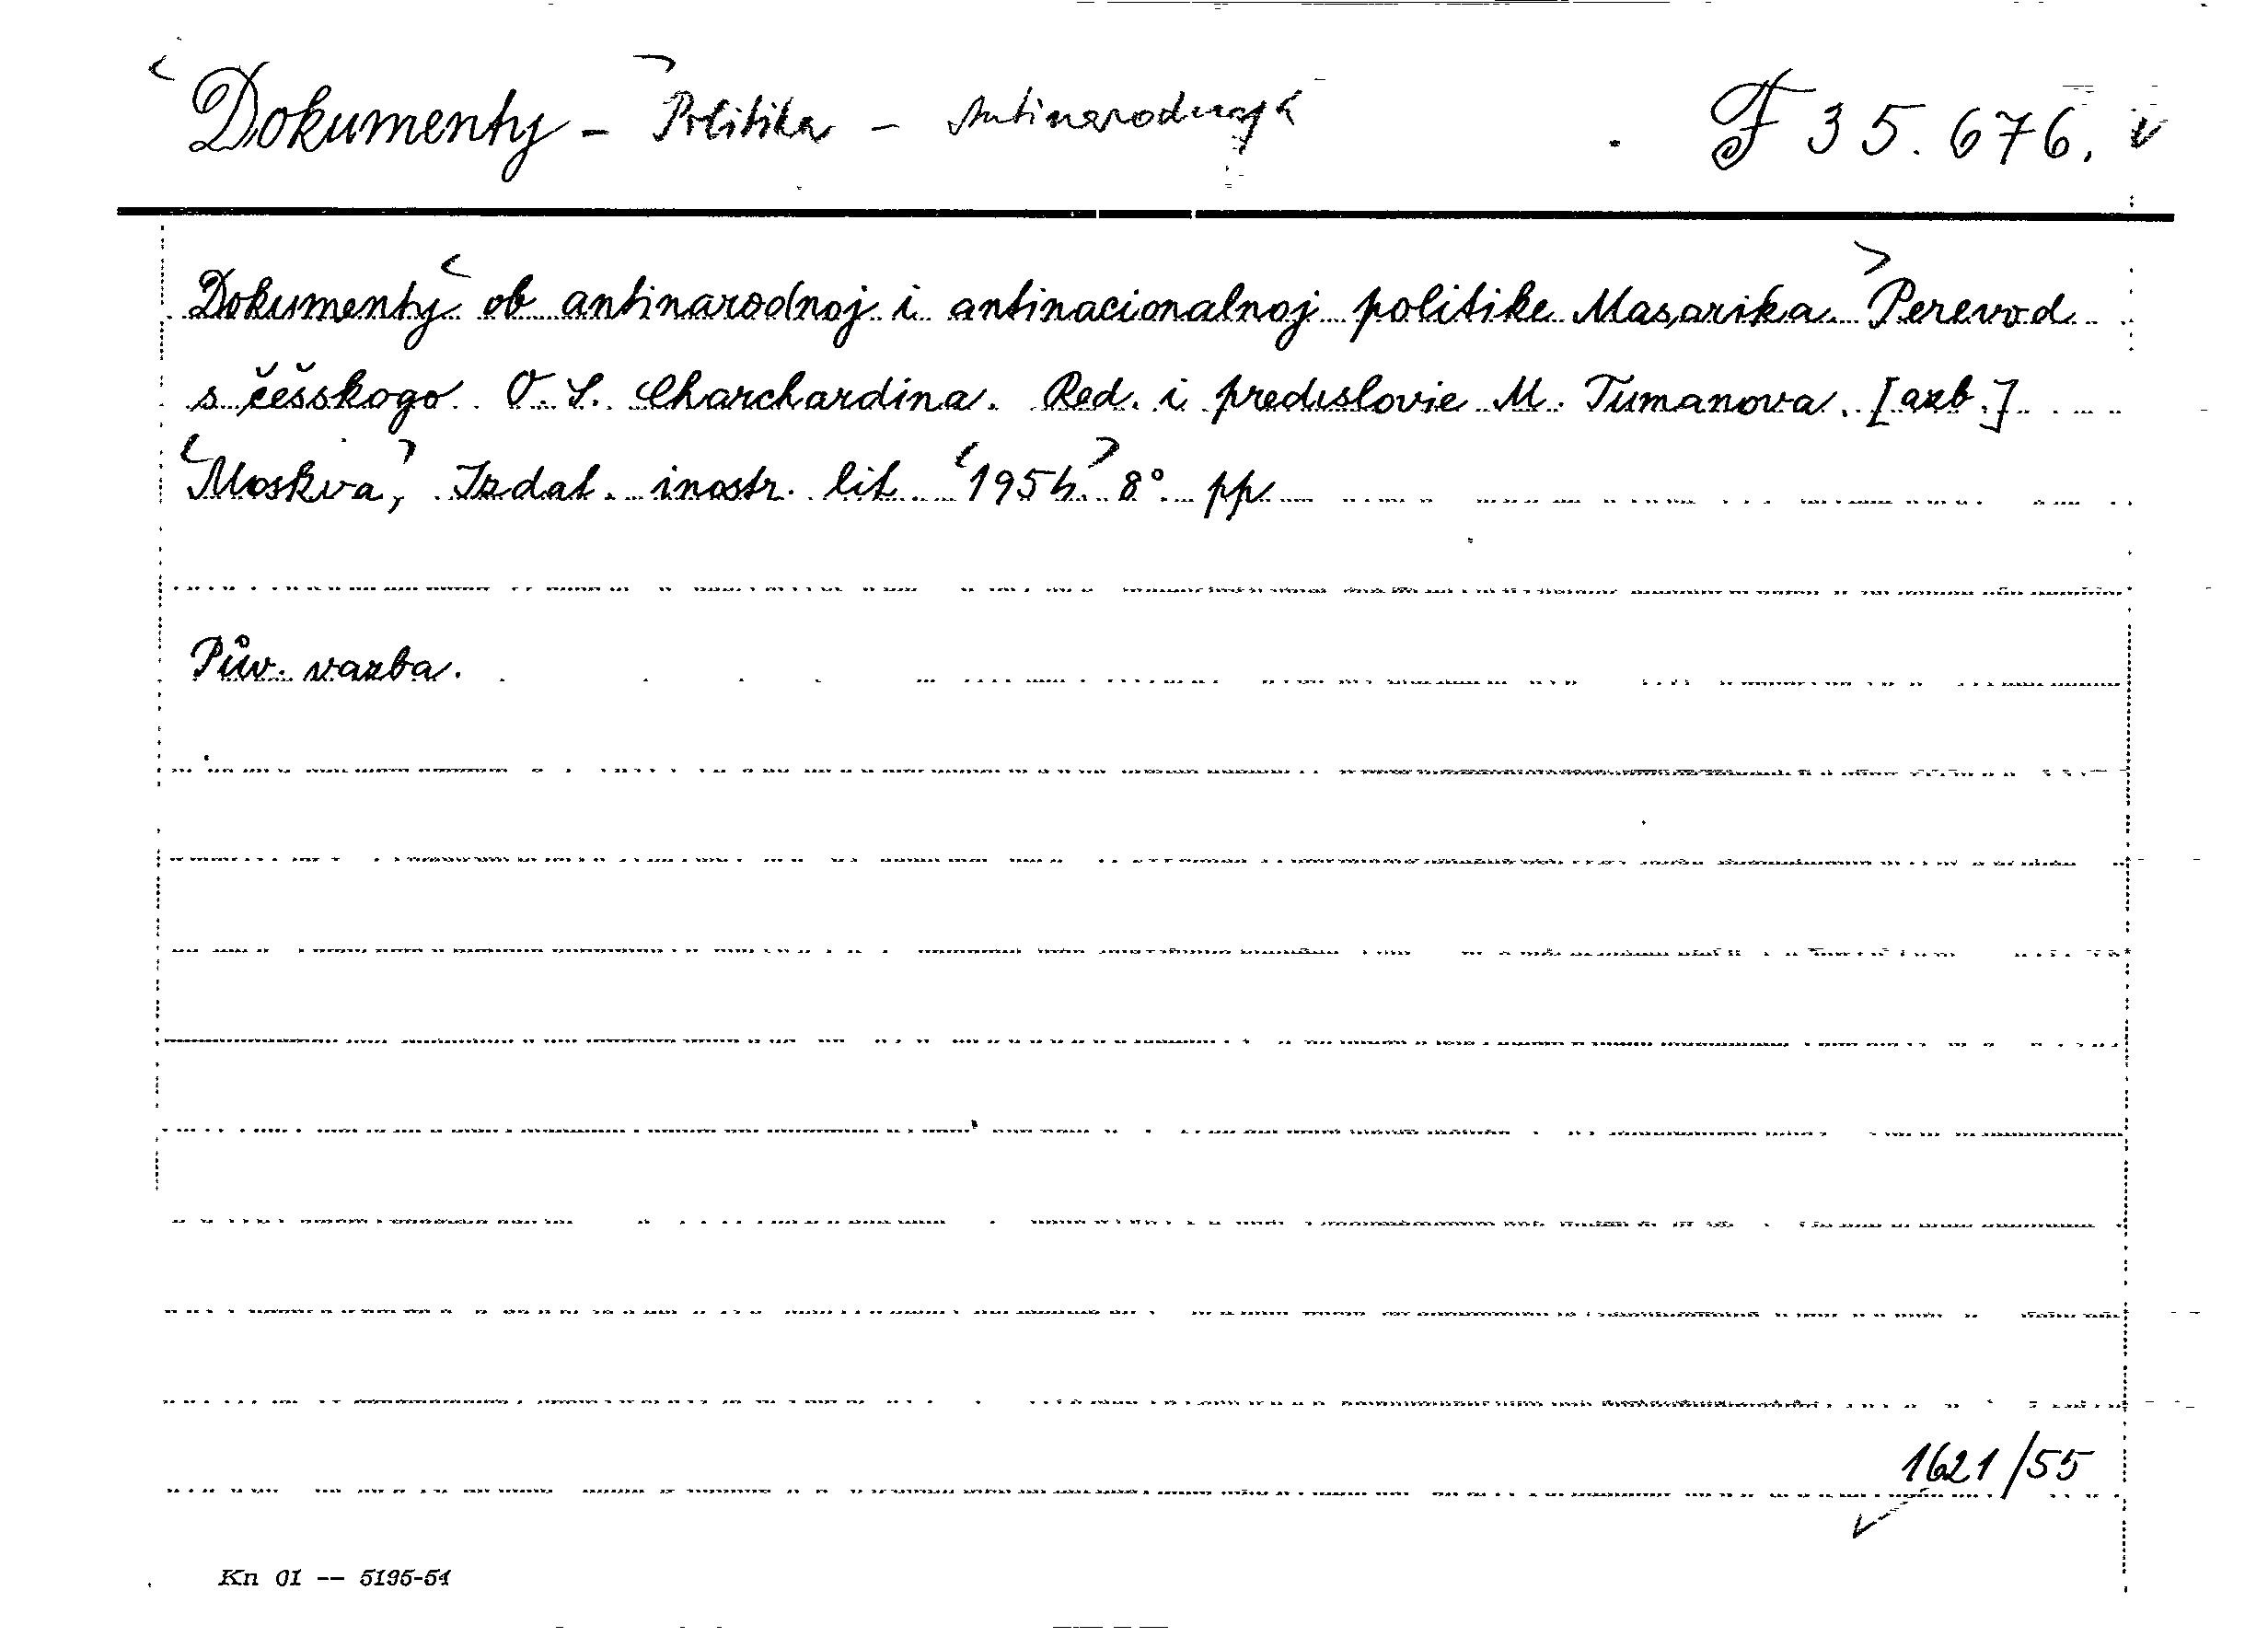 Dokumenty - Politika - Antinarodnaja F 35.676.
Dokumenty ob antinarodnoj i antinacionalnoj politike Masarika. Perevod
s češskogo O. S. Charchardina. Red. i predislovie M. Tumanova. [azb.]
Moskva, Izdat. inostr. lit. 1954. 8° pp
Pův. vazba.
1621/55
Kn 01 -- 5195-54